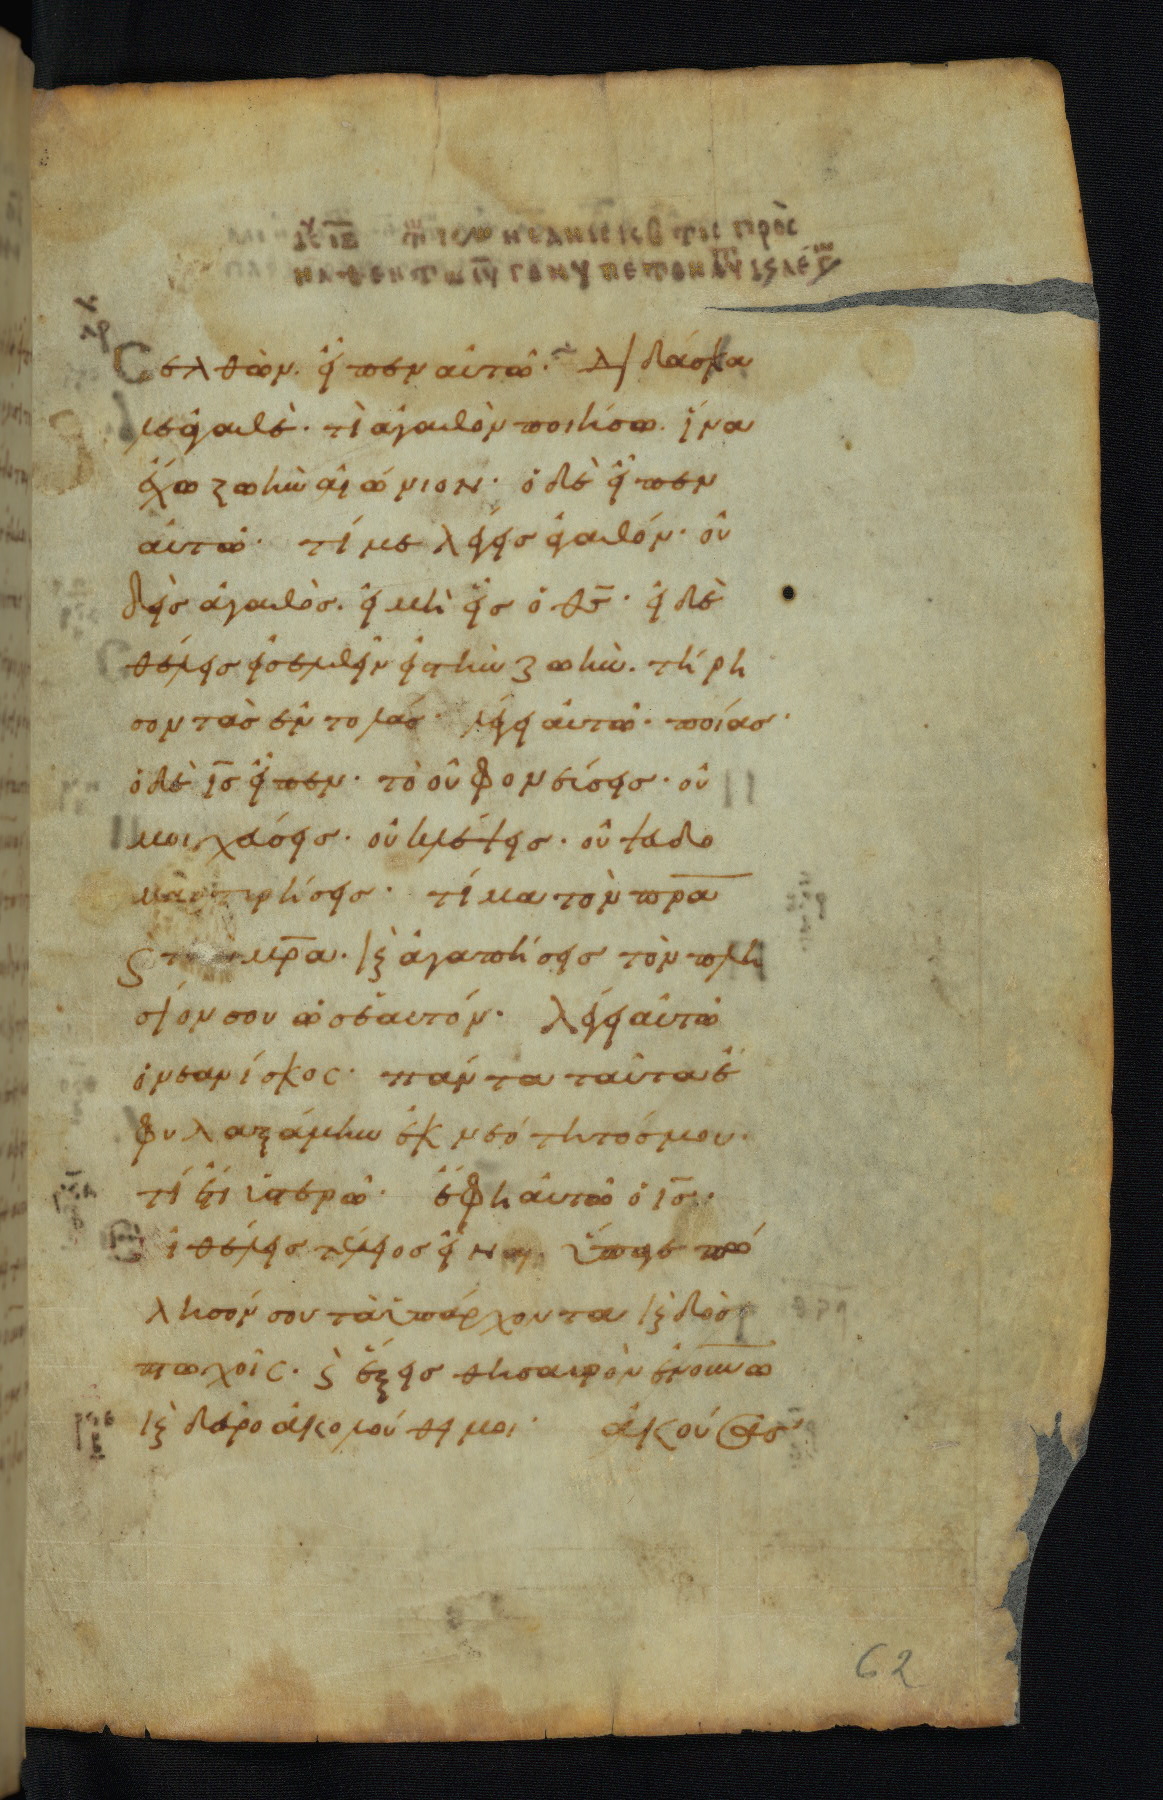 σελθὼν εἶπεν αὐτῶ· διδάσκα
λε ἀγαθὲ· τὶ ἀγαθὸν ποιήσω ἵνα
ἔχω ζωὴν αἰώνιον· ὁ δὲ εἶπεν
αὐτῶ· τί με λέγεις ἀγαθόν· οὐ
δεὶς ἀγαθὸς· εἰ μὴ εἷς ὁ θς· εἰ δὲ
θέλεις εἰσελθεῖν εἰς τὴν ζωὴν· τήρη
σον τὰς ἐντολάς· λέγει αὐτῶ· ποίας·
ὁ δὲ ις εἶπεν· τὸ οὐ φονεύσεις· οὐ
μοιχεύσεις· οὐ κλέψεις· οὐ ψευδο
μαρτυρήσεις· τίμα τὸν πρα
ϛ τὴν μρα· κὶ ἀγαπήσεις τὸν πλη
σίον σου ὡς σεαυτόν· λέγει αὐτῶ
ὁ νεανίσκος· πάντα ταῦτα ἐ
φυλαξάμην ἐκ νεότητός μου·
τί ἔτι ὑστερῶ· ἔφη αὐτῶ ὁ ις·
εἰ θέλεις τέλειος εἶναι· ὕπαγε πώ
λησόν σου τὰ ὑπάρχοντα κὶ δὸς
πτωχοῖς· ϛ ἕξεις θησαυρὸν ἐν οὐνω
κὶ δεῦρο ἀκολούθει μοι· ἀκούσας
62